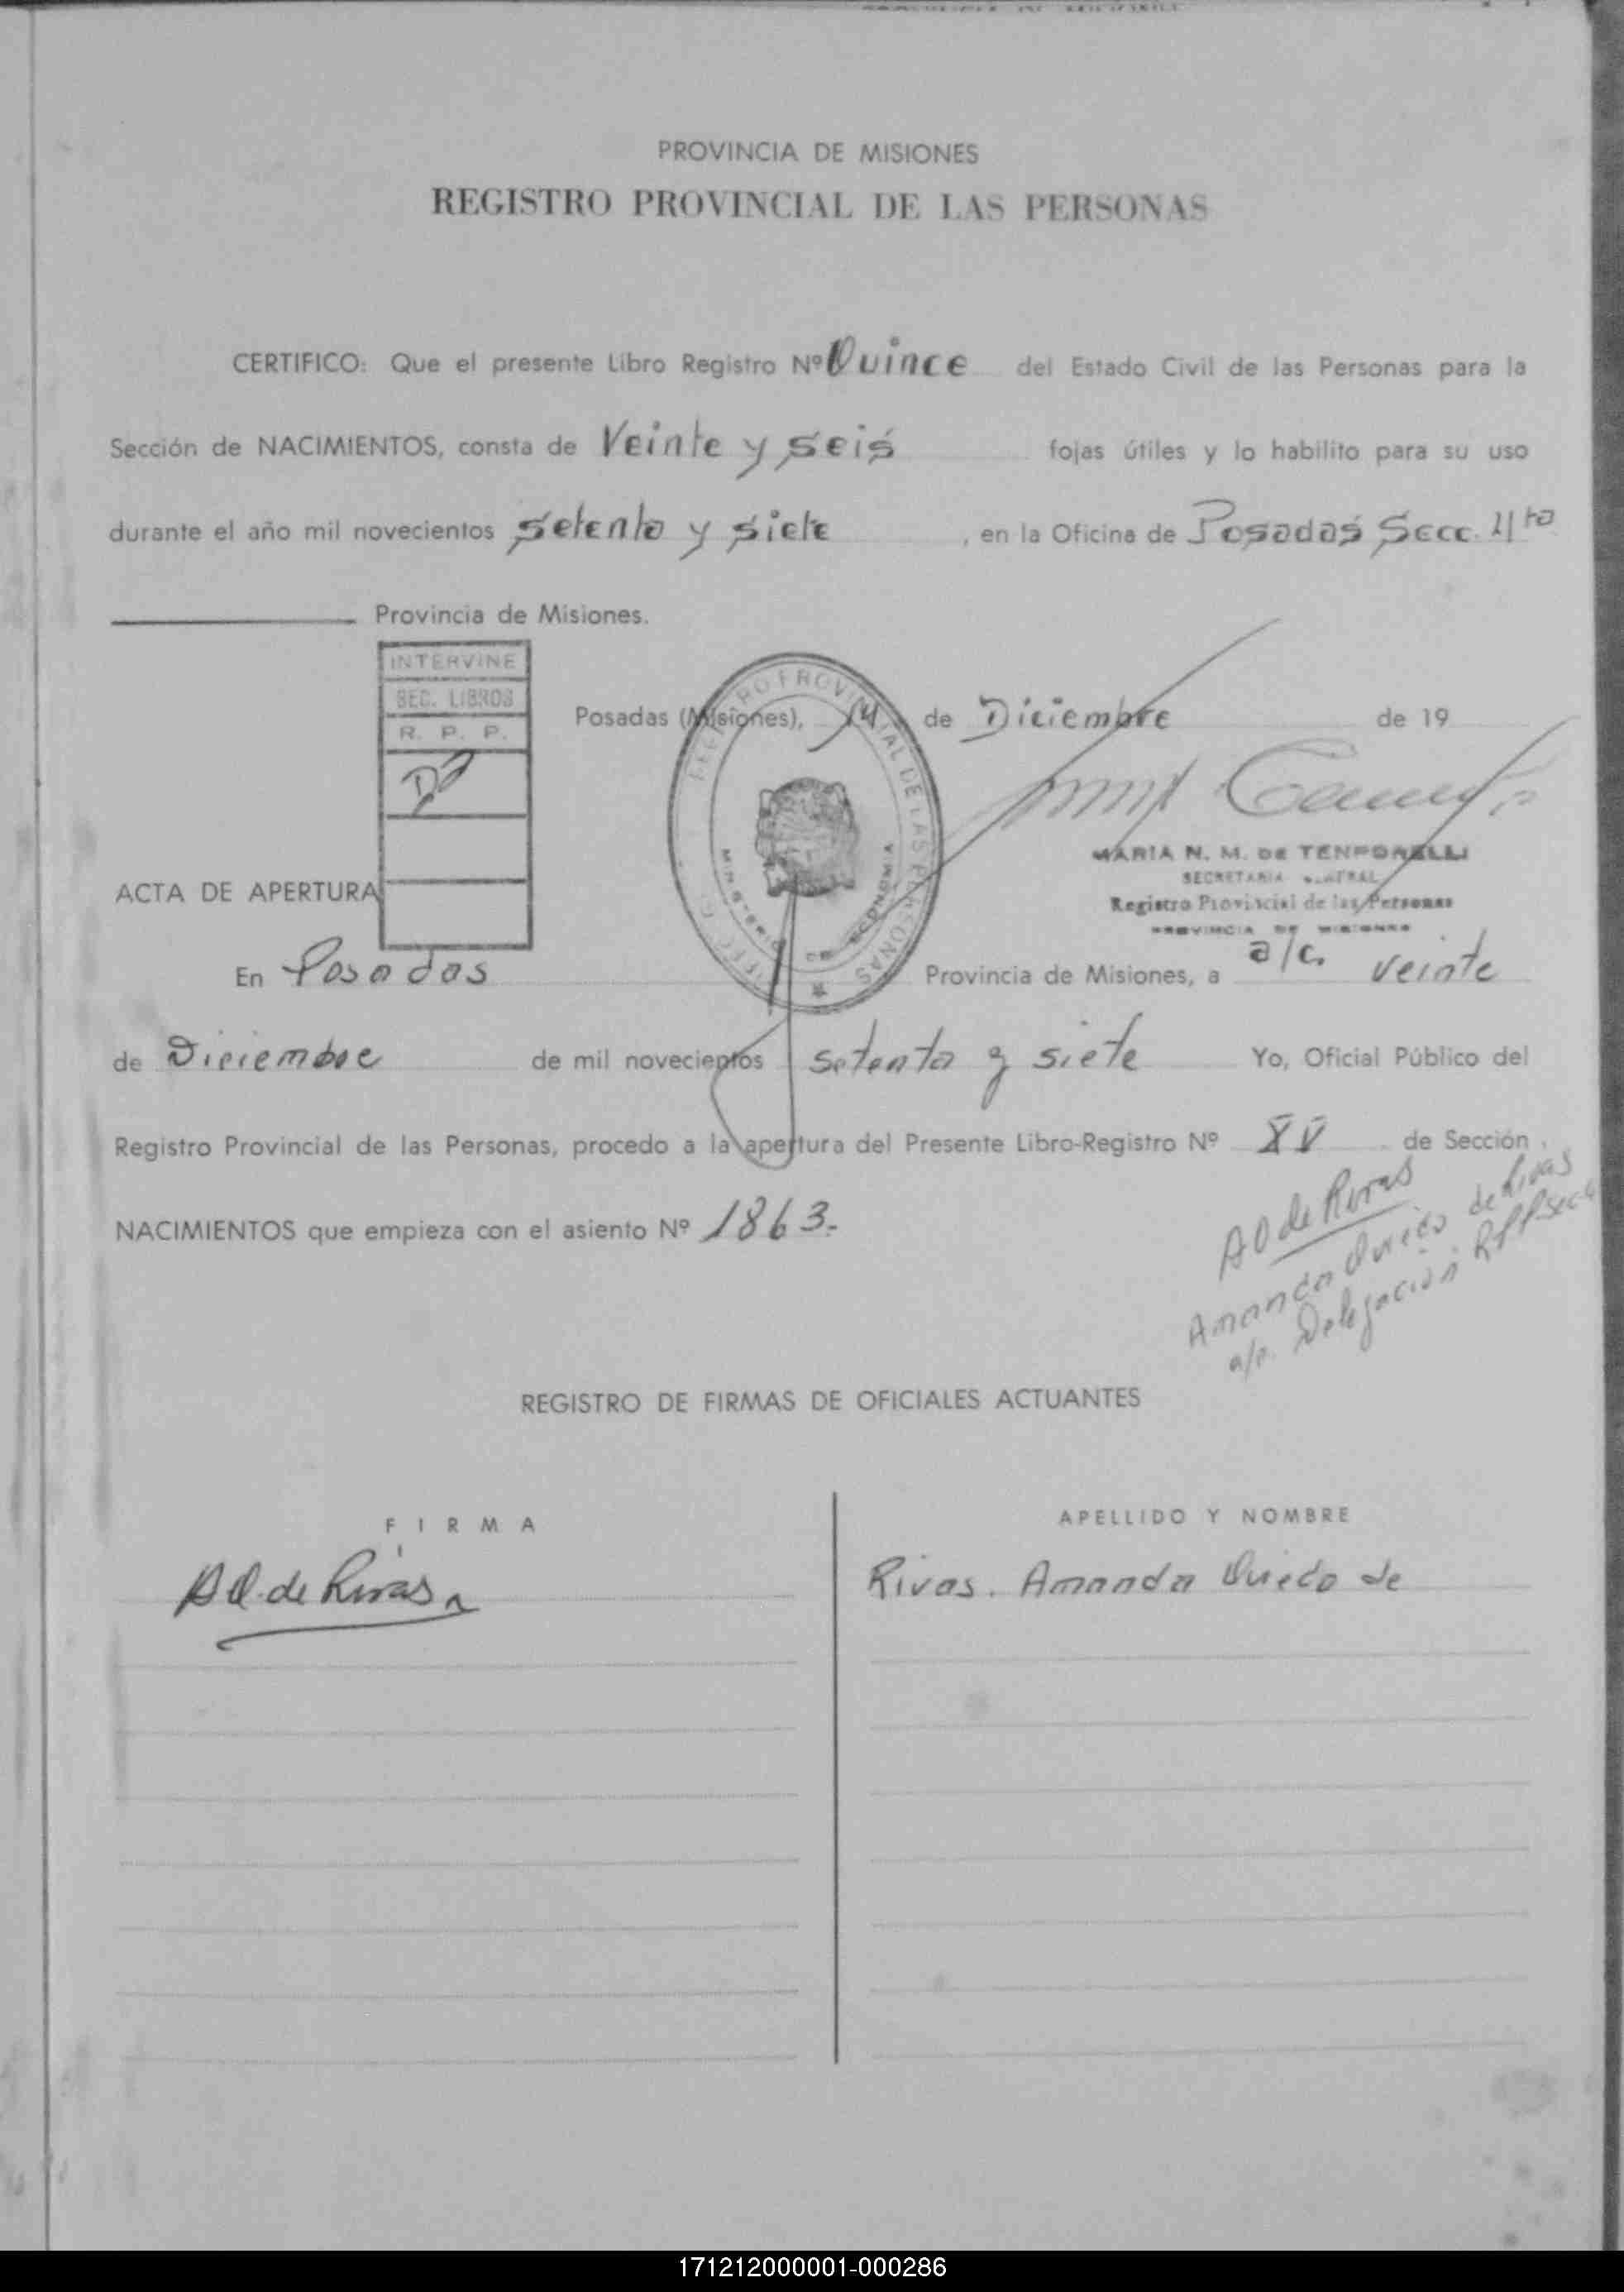 PROVINCIA DE MISIONES
REGISTRO PROVINCIAL DE LAS PERSONAS
CERTIFICO: Que el presente Libro Registro Nº Quince del Estado Civil de las Personas para la
Sección de NACIMIENTOS, consta de Veinte y seis fojas útiles y lo habilito para su uso
durante el año mil novecientos setenta y siete, en la Oficina de Posadas Secc. 4ta
Provincia de Misiones.
INTERVINE
SEC. LIBROS
R. P. P.
Posadas (Misiones), 14 de Diciembre de 19
REGISTRO PROVINCIAL DE LAS PERSONAS
MINISTERIO DE ECONOMIA
MARIA N. M. DE TENPORELLI
SECRETARIA GENERAL
Registro Provincial de las Personas
PROVINCIA DE MISIONES
a/c.
ACTA DE APERTURA
En Posadas Provincia de Misiones, a veinte
de Diciembre de mil novecientos setenta y siete Yo, Oficial Público del
Registro Provincial de las Personas, procedo a la apertura del Presente Libro-Registro Nº XV de Sección
NACIMIENTOS que empieza con el asiento Nº 1863.-
AO de Rivas
Amanda Oviedo de Rivas
Delegación RPP Sec 4
REGISTRO DE FIRMAS DE OFICIALES ACTUANTES
FIRMA
APELLIDO Y NOMBRE
AO. de Rivas
Rivas. Amanda Oviedo de
171212000001-000286